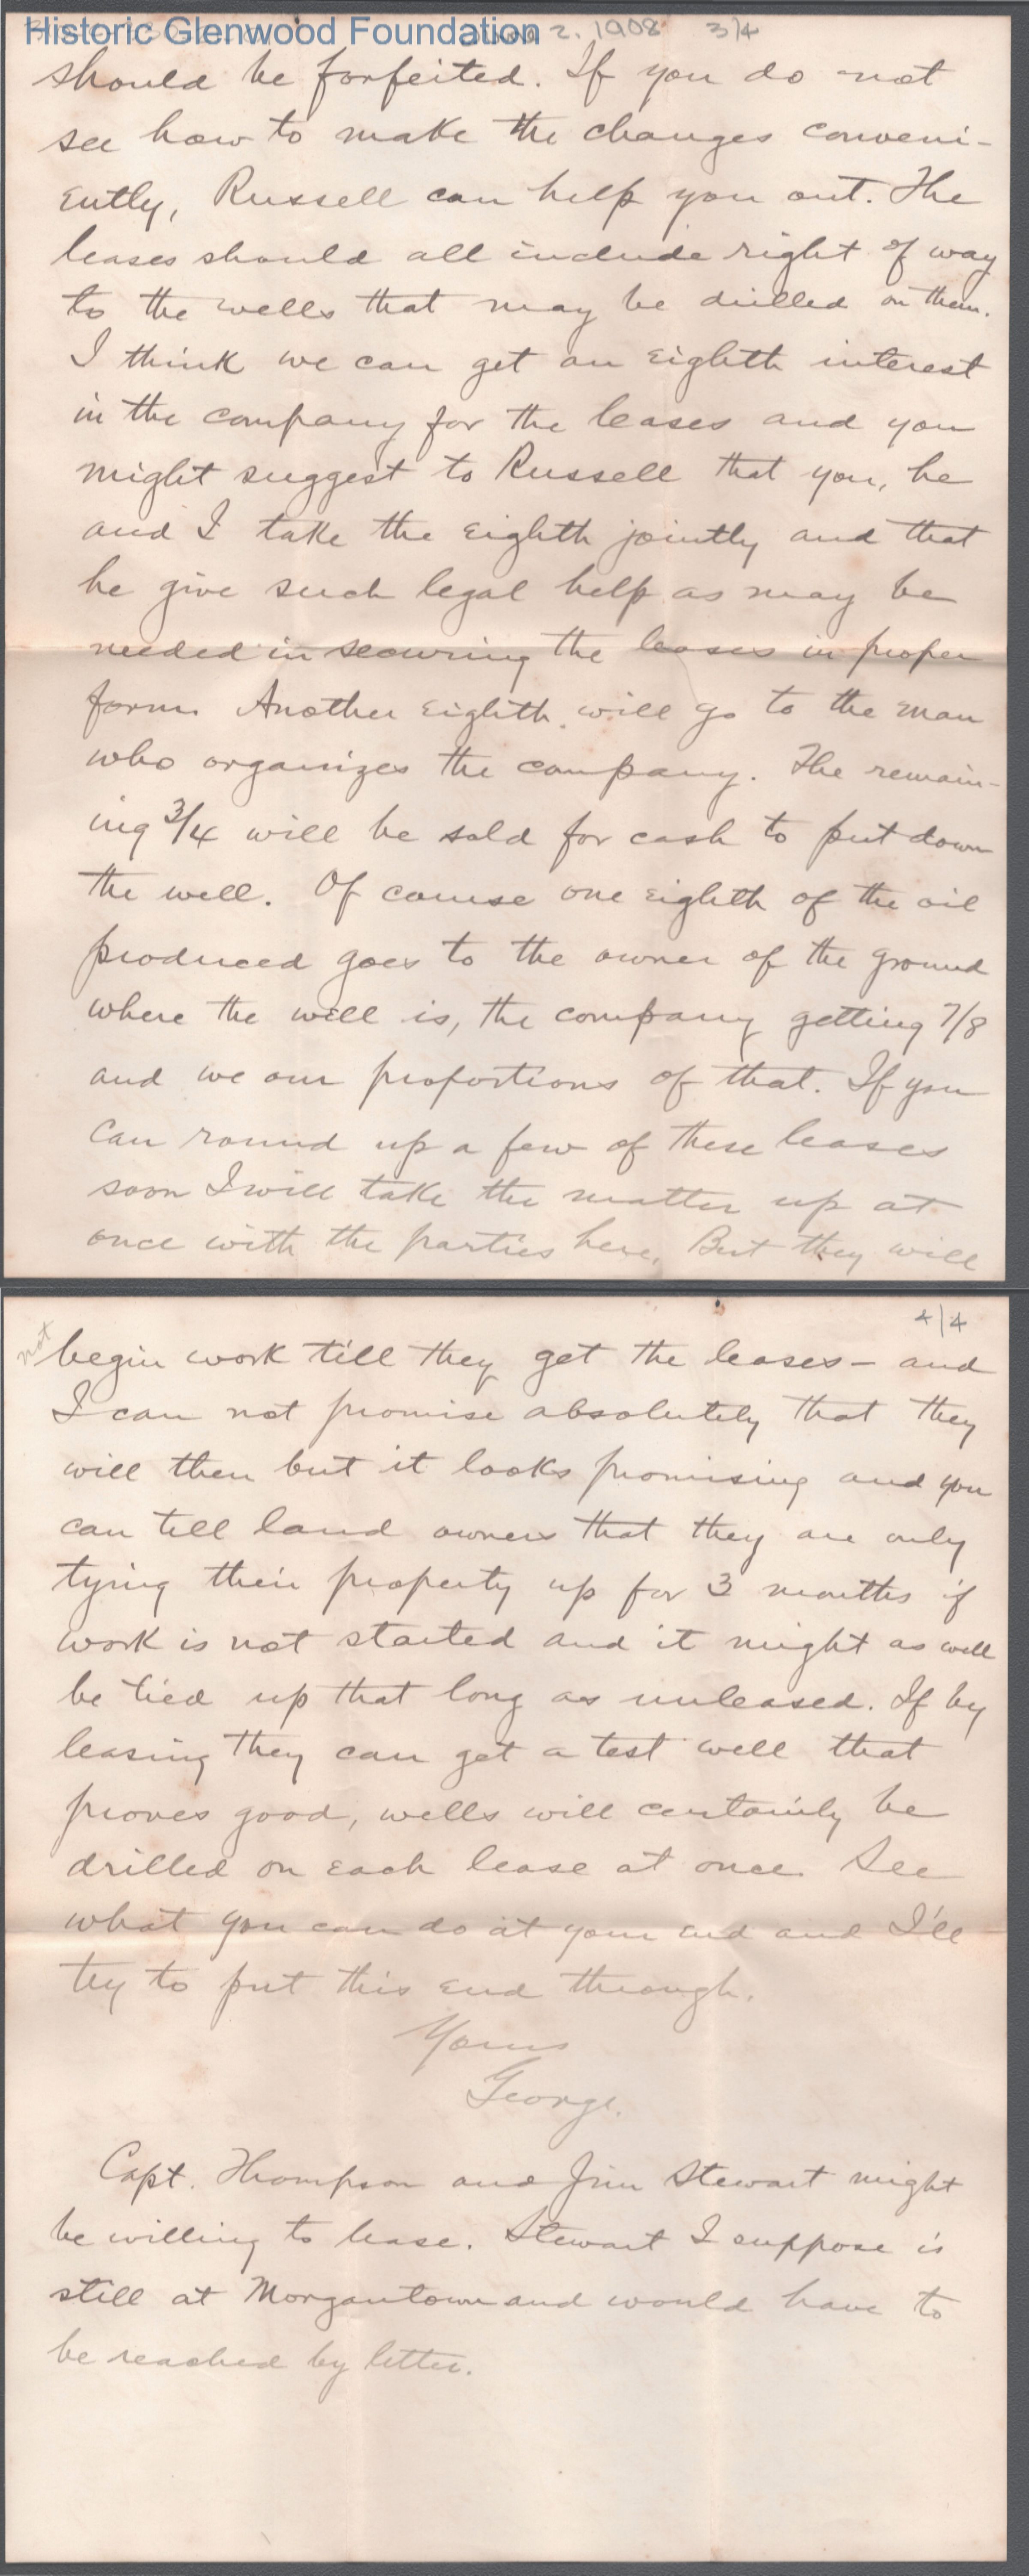 Historic Glenwood Foundation
2. 1908 3/4
should be forfeited. If you do not
see how to make the changes conveni-
ently, Russell can help you out. The
leases should all include right of way
to the wells that may be drilled on them.
I think we can get an eighth interest
in the company for the leases and you
might suggest to Russell that you, he
and I take the eighth jointly and that
he give such legal help as may be
needed in securing the leases in proper
form. Another eighth will go to the man
who organizes the company. The remain-
ing 3/4 will be sold for cash to put down
the well. Of course one eighth of the oil
produced goes to the owner of the ground
where the well is, the company getting 7/8
and we our proportions of that. If you
can round up a few of these leases
soon I will take the matter up at
once with the parties here. But they will
4/4
not begin work till they get the leases - and
I can not promise absolutely that they
will then but it looks promising and you
can tell land owners that they are only
tying their property up for 3 months if
work is not started and it might as well
be tied up that long as unleased. If by
leasing they can get a test well that
proves good, wells will certainly be
drilled on each lease at once. See
what you can do at your end and I'll
try to put this end through.
Yours
George.
Capt. Thompson and Jim Stewart might
be willing to lease. Stewart I suppose is
still at Morgantown and would have to
be reached by letter.